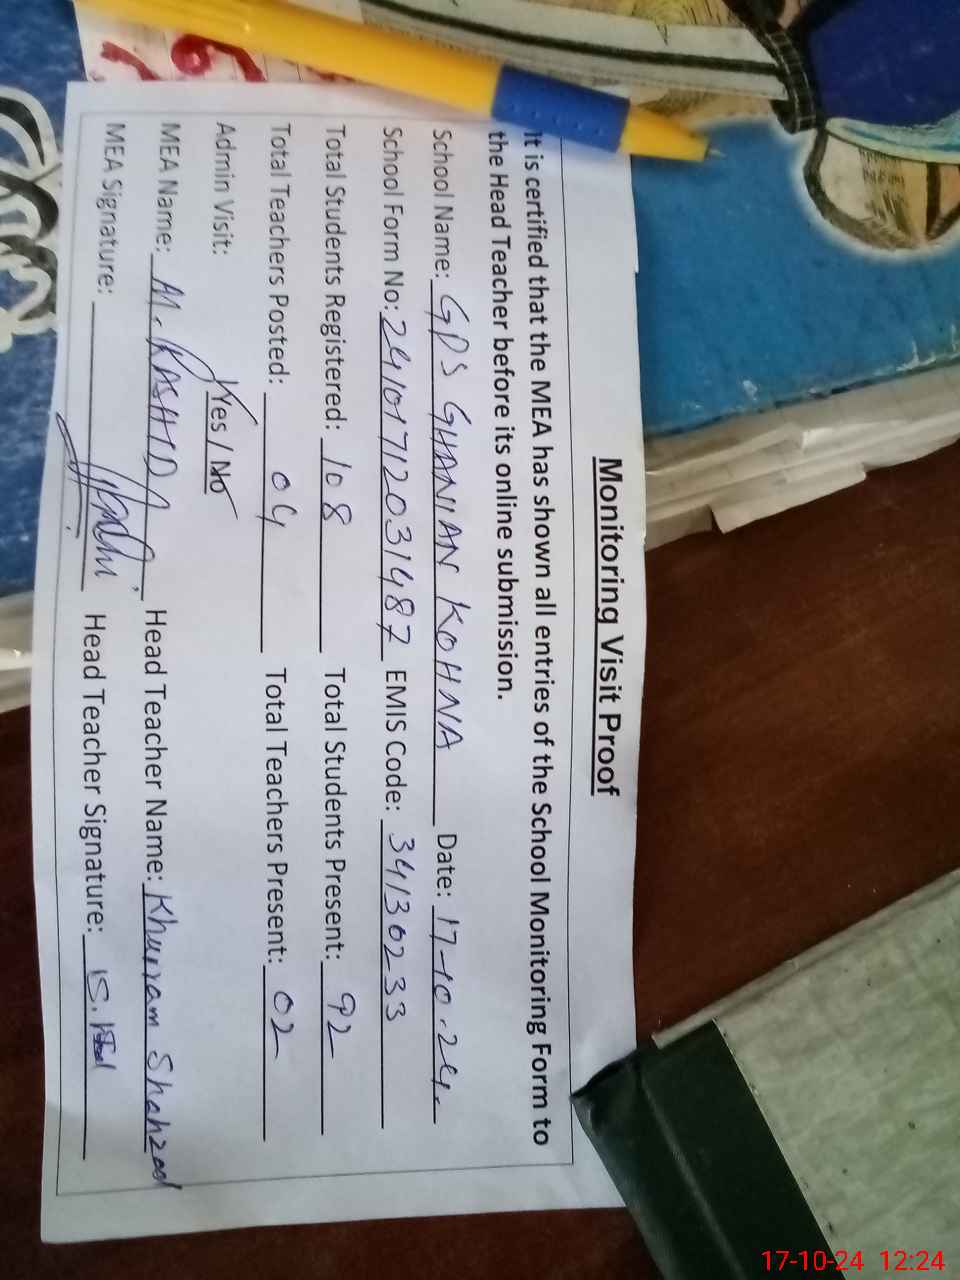 Monitoring Visit Proof
It is certified that the MEA has shown all entries of the School Monitoring Form to
the Head Teacher before its online submission.
School Name: GPS GHANIAN KOHNA Date: 17-10-24.
School Form No: 24101712031487 EMIS Code: 34130233
Total Students Registered: 108 Total Students Present: 92
Total Teachers Posted: 04 Total Teachers Present: 02
Admin Visit: Yes / No
MEA Name: M. RASHID Head Teacher Name: Khurram Shahzad
MEA Signature: Head Teacher Signature:
17-10-24 12:24